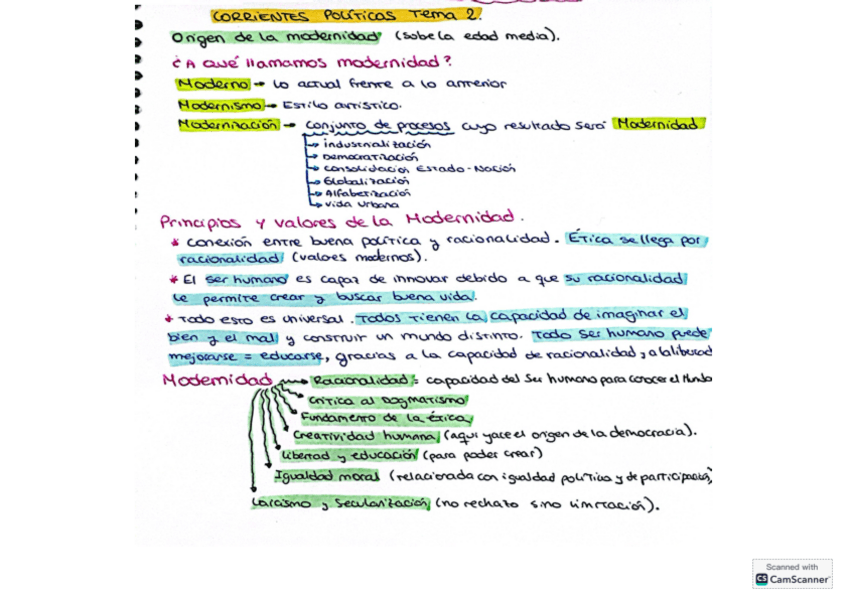 CORRIENTES POLÍTICAS Tema 2.
Origen de la modernidad (sobe la edad media).
¿A qué llamamos modernidad?
Moderno → Lo actual frente a lo anterior
Modernismo → Estilo artístico.
Modernización → conjunto de procesos cuyo resultado será Modernidad
↳ industrialización
↳ Democratización
↳ consolidacion Estado-Nación
↳ Globalización
↳ Alfabetización
↳ vida urbana
Principios y valores de la Modernidad.
* conexión entre buena política y racionalidad. Ética se llega por
racionalidad (valores modernos).
* El ser humano es capaz de innovar debido a que su racionalidad
le permite crear y buscar buena vida.
* Todo esto es universal. Todos tienen la capacidad de imaginar el
bien y el mal y construir un mundo distinto. Todo ser humano puede
mejorarse = educarse, gracias a la capacidad de racionalidad y a la libertad
Modernidad → Racionalidad: capacidad del ser humano para conocer el Mundo
→ crítica al Dogmatismo
→ Fundamento de la ética
→ Creatividad humana (aquí yace el origen de la democracia).
→ Libertad y educación (para poder crear)
→ Igualdad moral (relacionada con igualdad política y de participación)
→ Laicismo y Secularización (no rechazo sino limitación).
Scanned with
CS CamScanner